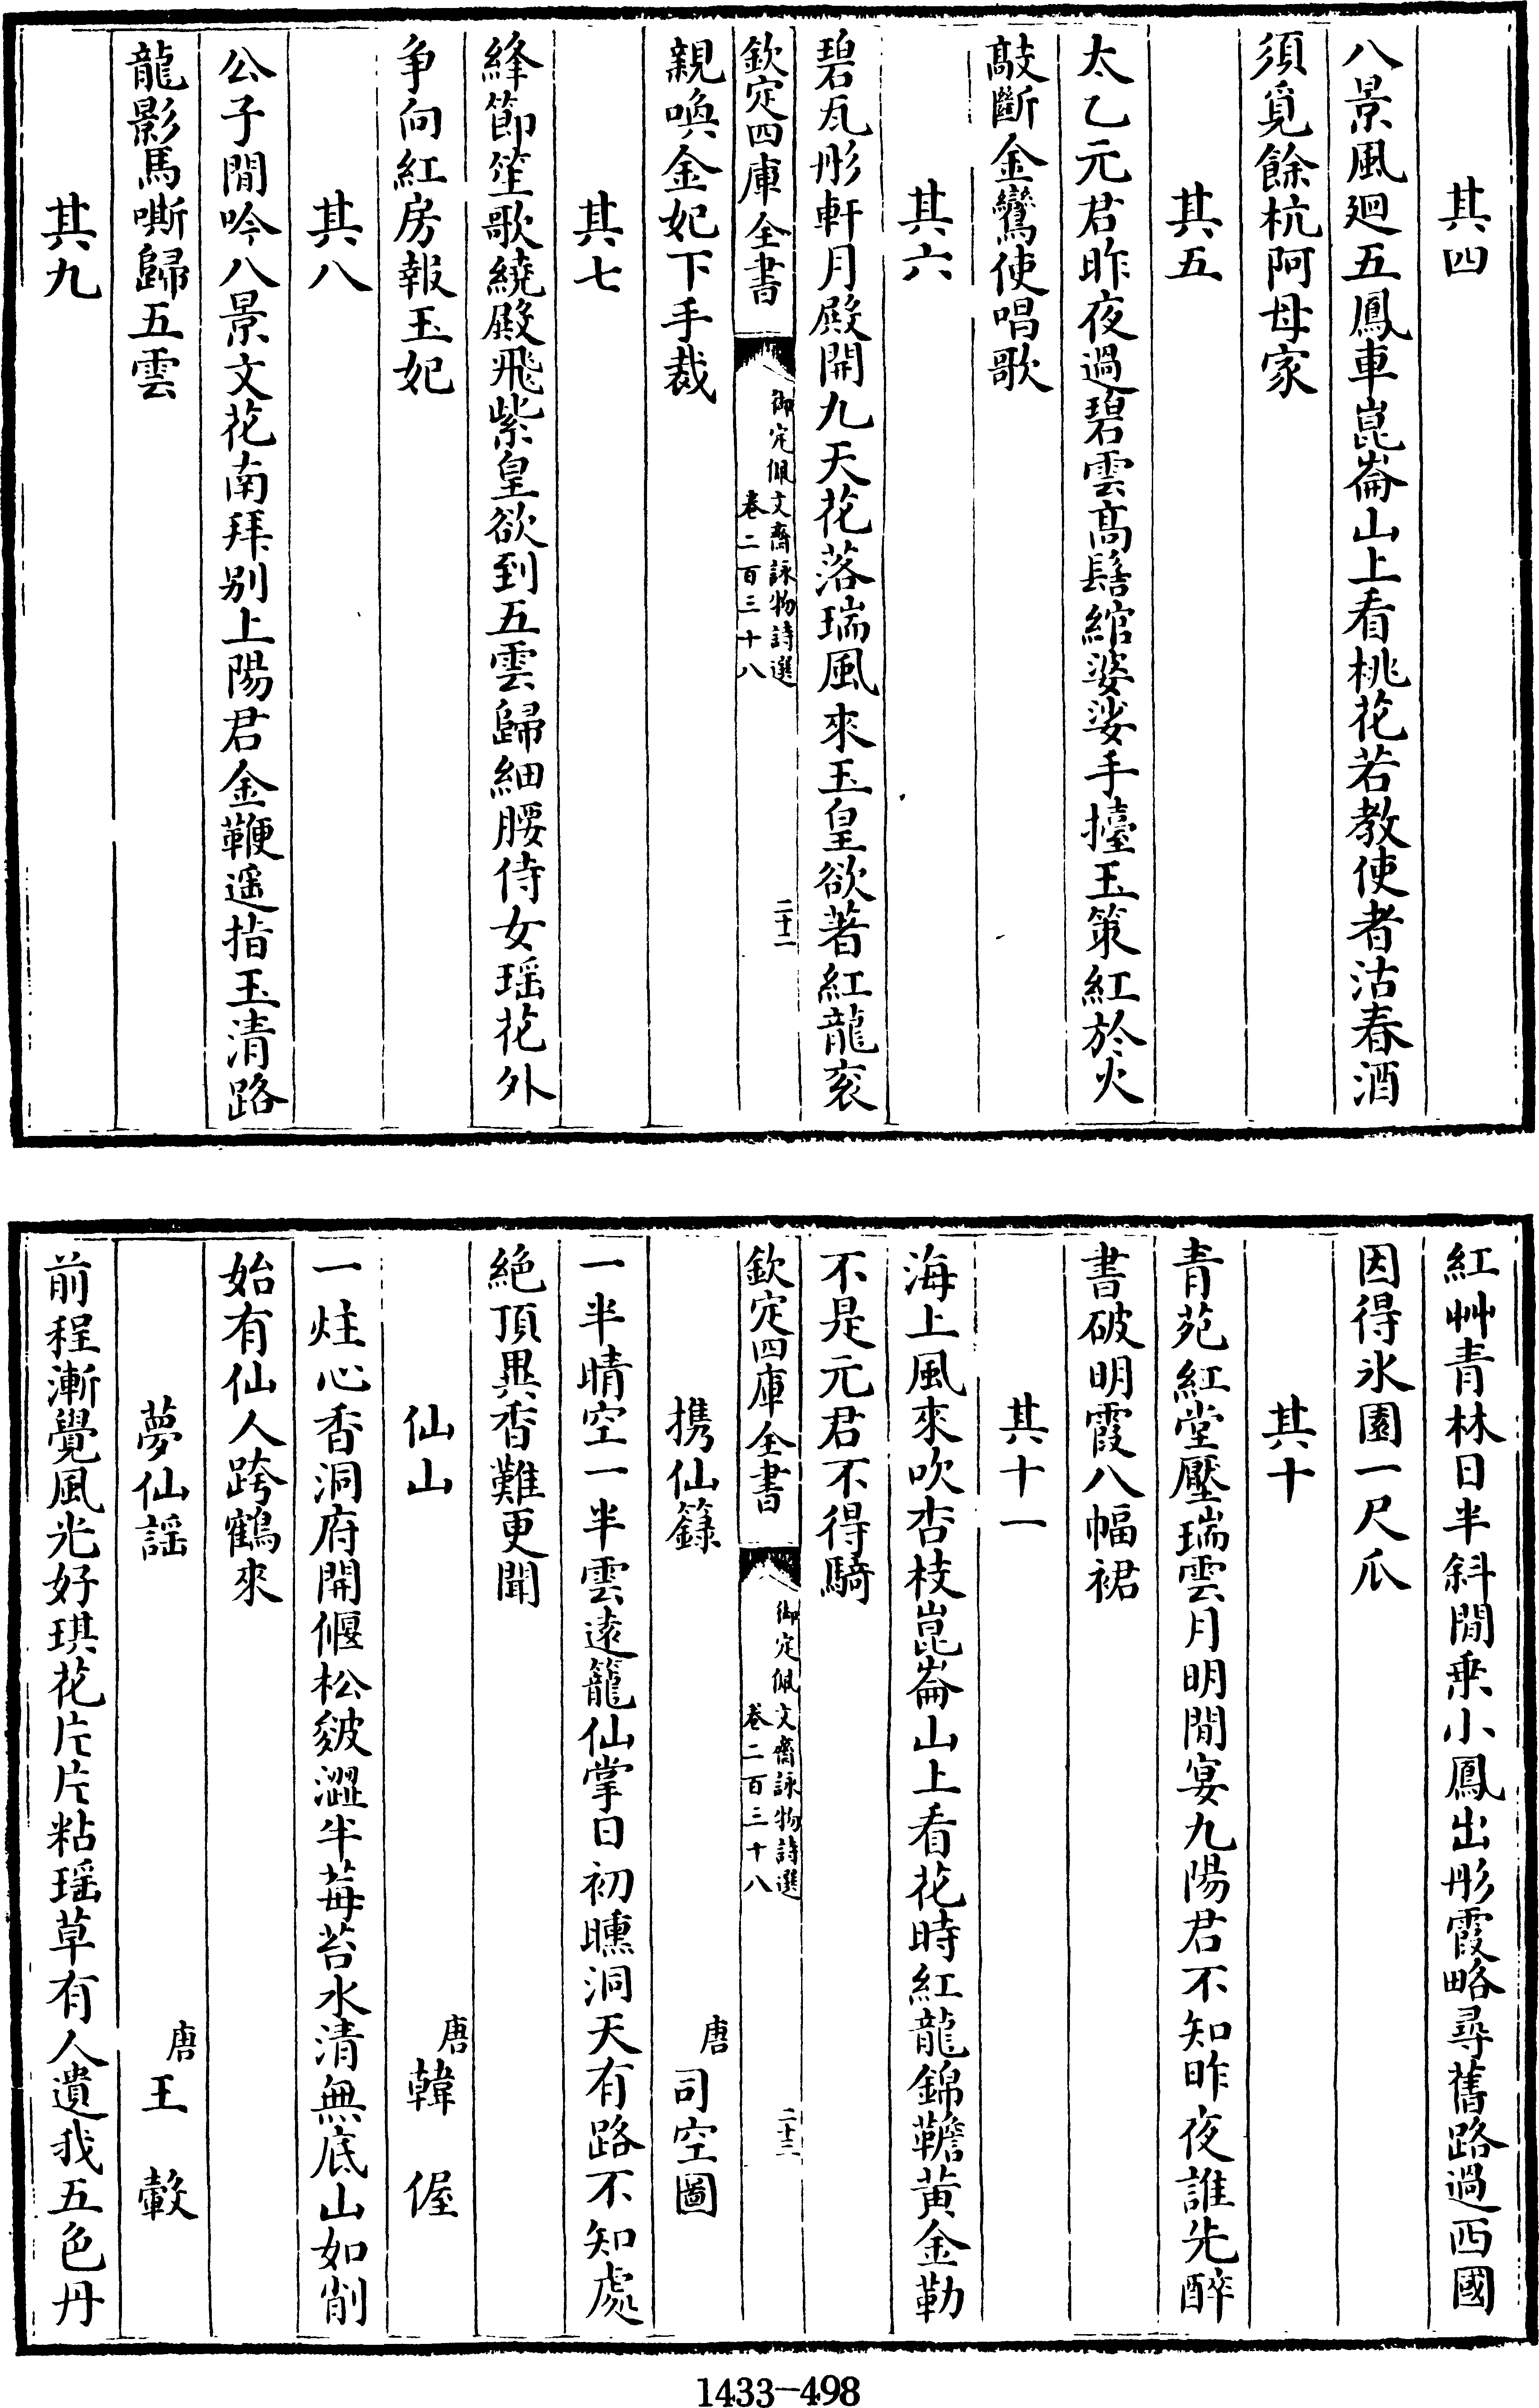 其四
八景風廻五鳳車崑崙山上看桃花若教使者沽春酒
須覓餘杭阿母家
其五
太乙元君昨夜過碧雲髙髻綰婆娑手擡玉策紅於火
敲斷金鸞使唱歌
其六
碧瓦彤軒月殿開九天花落瑞風來玉皇欲著紅龍衮
欽定四庫全書
御定佩文齋詠物詩選
卷二百三十八
二十二
親喚金妃下手裁
其七
絳節笙歌繞殿飛紫皇欲到五雲歸細腰侍女瑶花外
争向紅房報玉妃
其八
公子閒吟八景文花南拜别上陽君金鞭遥指玉清路
龍影馬嘶歸五雲
其九
紅艸青林日半斜閒乗小鳳出彤霞略尋舊路過西國
因得氷園一尺瓜
其十
青苑紅堂壓瑞雲月明閒宴九陽君不知昨夜誰先醉
書破明霞八幅裙
其十一
海上風來吹杏枝崑崙山上看花時紅龍錦韂黄金勒
不是元君不得騎
欽定四庫全書
御定佩文齋詠物詩選
卷二百三十八
二十三
携仙籙
唐司空圖
一半晴空一半雲遠籠仙掌日初曛洞天有路不知處
絶頂異香難更聞
仙山
唐韓偓
一炷心香洞府開偃松皴澀半莓苔水清無底山如削
始有仙人跨鶴來
夢仙謡
唐王轂
前程漸覺風光好琪花片片粘瑶草有人遺我五色丹
1433-498